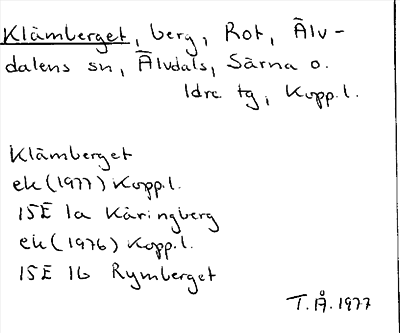 Klämberget, berg, Rot, Älv-
dalens sn, Älvdals, Särna o.
Idre tg, Kopp.l.
Klämberget
ek (1977) Kopp.l.
15E 1a Käringberg
ek (1976) Kopp.l.
15E 1b Rymberget
T.Å. 1977